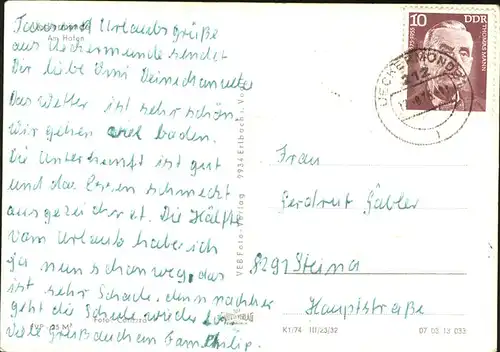 Tausend Urlaubsgrüße
aus Ueckermünde sendet
Dir liebe Omi Deine
Am Hafen
Das Wetter ist sehr schön
wir gehen viel baden.
Die Unterkunft ist gut
und das Essen schmeckt
ausgezeichnet. Die Hälfte
vom Urlaub habe ich
ja nun schon weg, das
ist sehr Schade, denn nachher
geht die Schule wieder los
viele Grüße auch an Fam.
VEB Foto-Verlag 9934 Erlbach i. Vogtl.
10 DDR
THOMAS MANN
UECKERMÜNDE
Frau
Gerdrut Gäbler
8291 Steina
Hauptstraße
K1/74 III/23/32 07 03 13 033